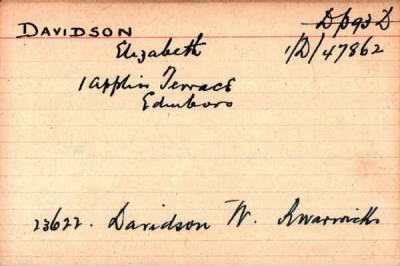 DAVIDSON
Elizabeth 1/D/47862
1 Applin Terrace
Edinboro
23622. Davidson W. R Warwicks